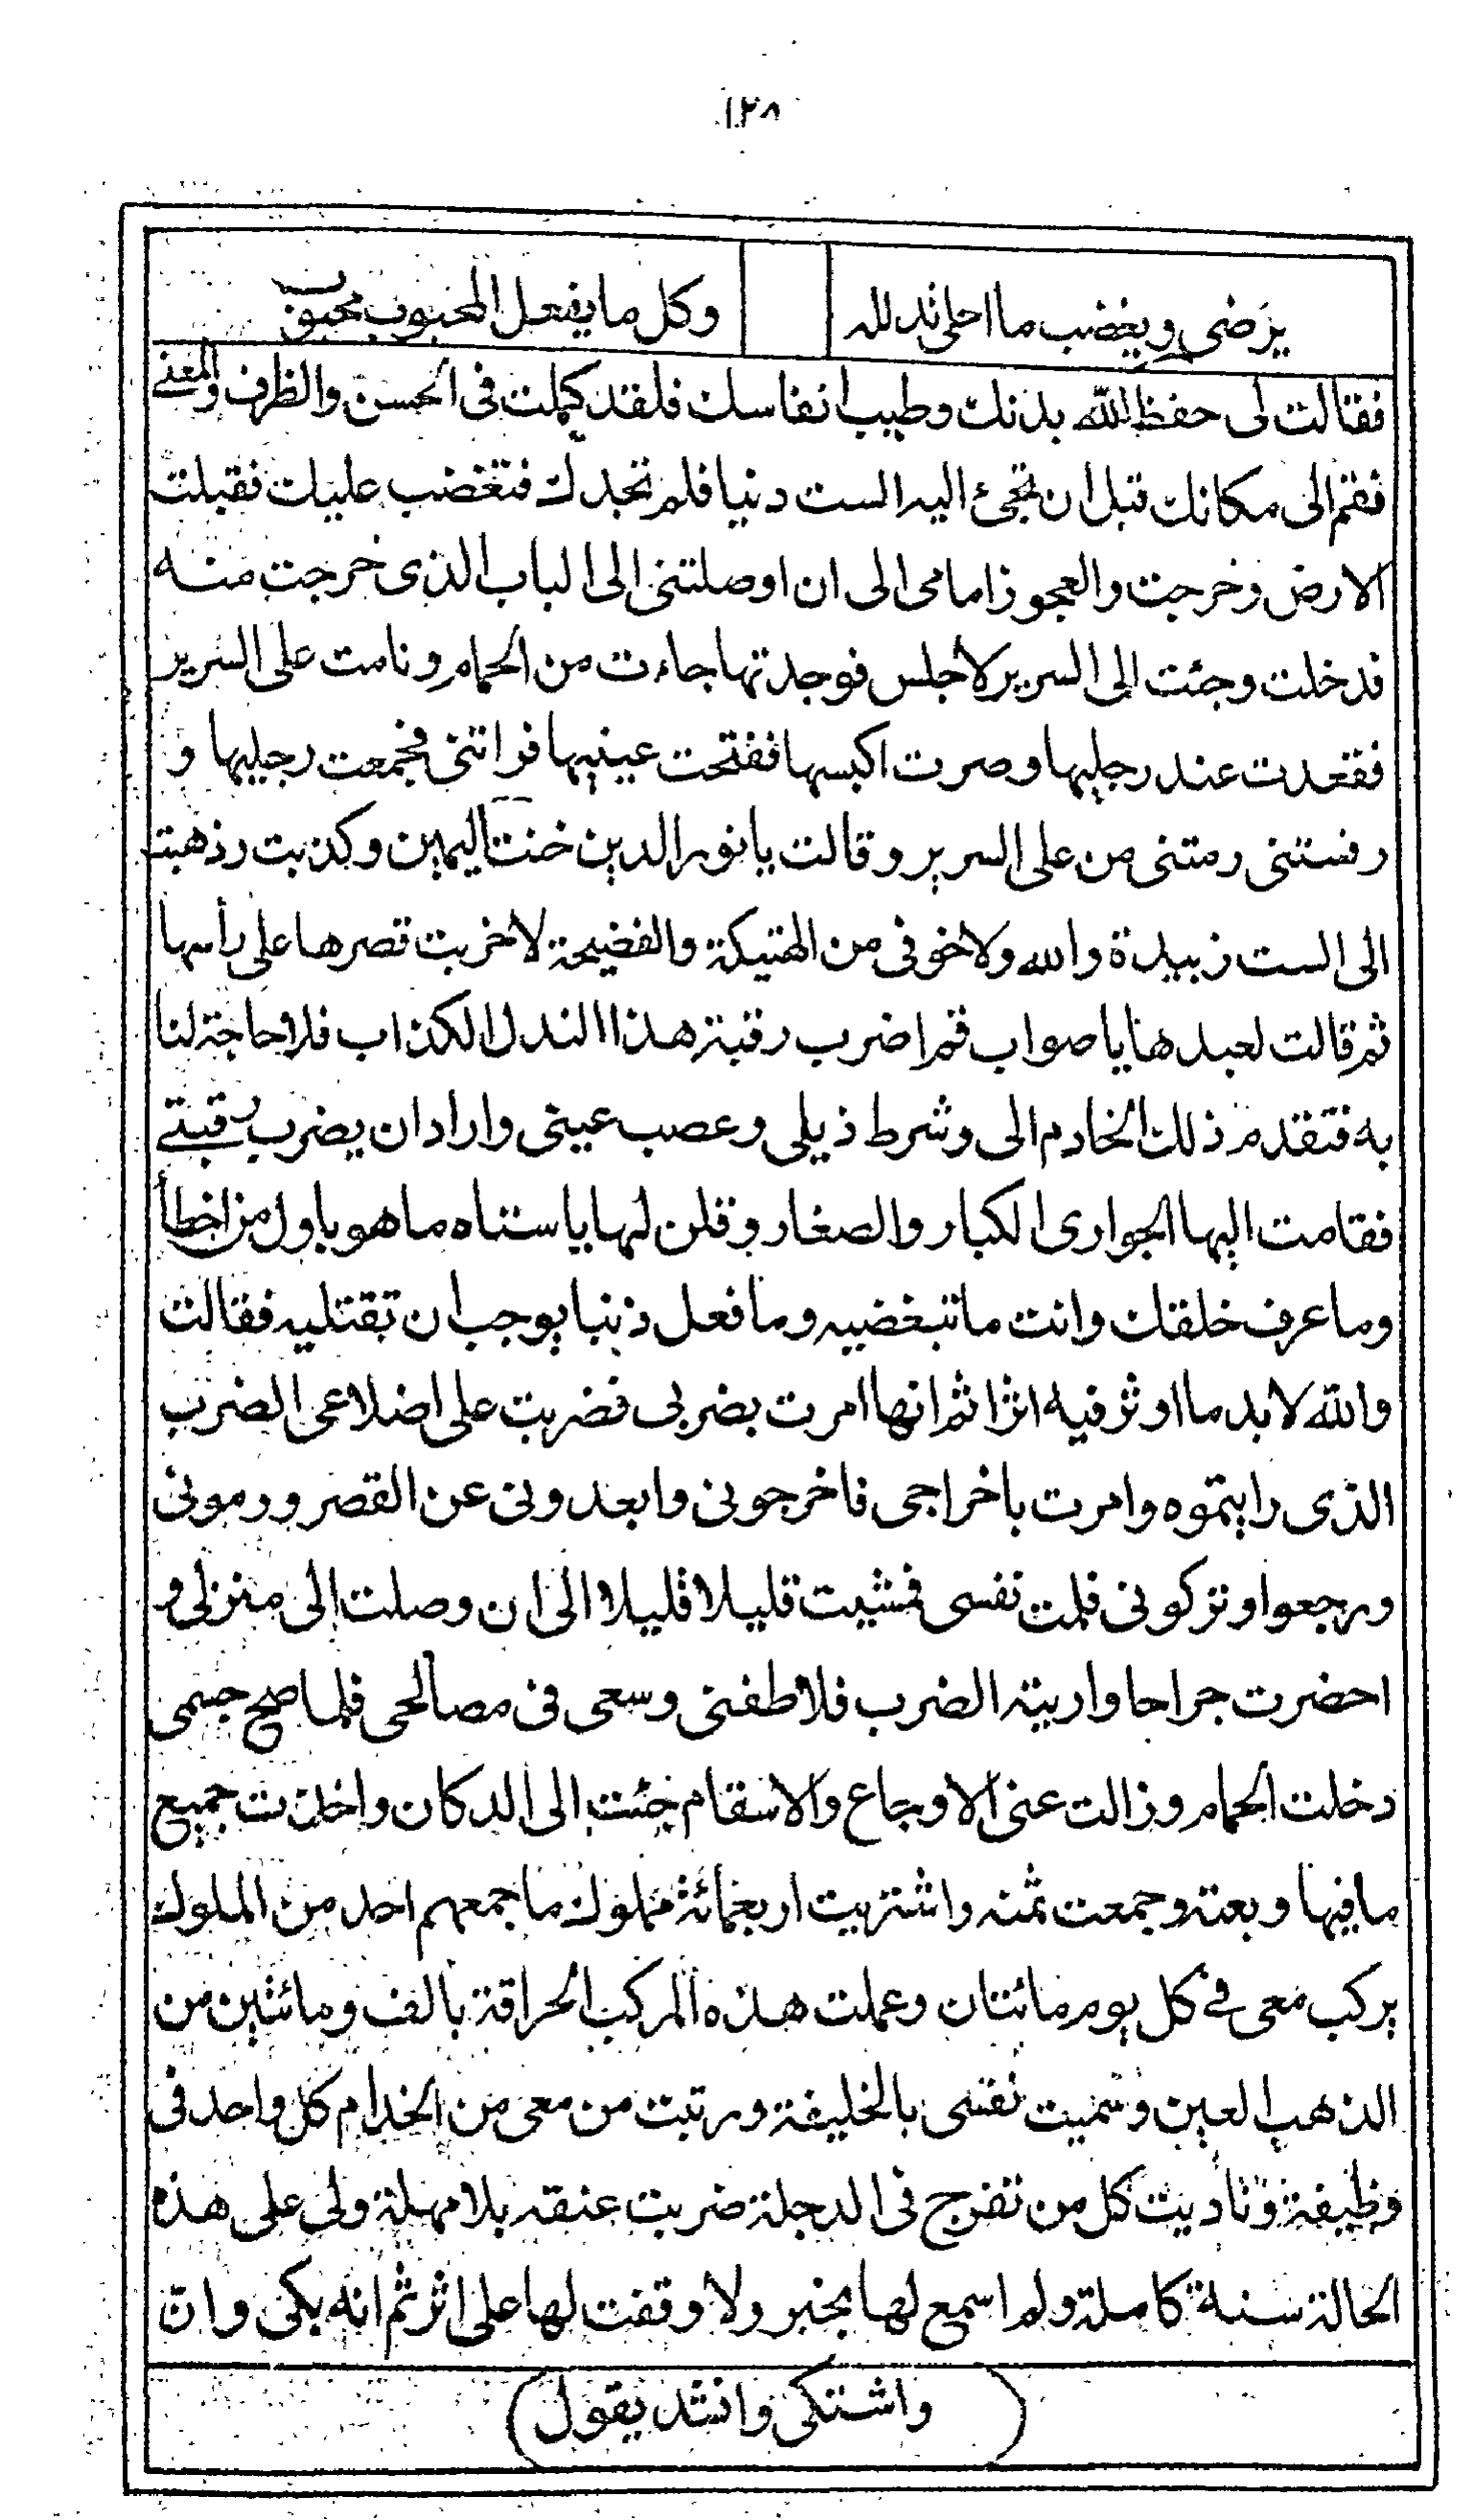 ١٢٨
يرضى ويغضب ما احلى تدلله وكل ما يفعل المحبوب محبوب
فقالت لى حفظ الله بدنك وطيب انفاسك فلقد كملت فى الحسن والظرف والمغنى
فقم الى مكانك قبل ان تجئ اليه الست دنيا فلم تجدك فتغضب عليك فقبلت
الارض وخرجت والعجوز امامى الى ان اوصلتنى الى الباب الذى خرجت منه
فدخلت وجئت الى السرير لاجلس فوجدتها جاءت من الحمام ونامت على السرير
فقعدت عند رجليها وصرت اكبسها ففتحت عينيها فراتنى فجمعت رجليها و
رفستنى رمتنى من على السرير وقالت يا نور الدين خنت اليمين وكذبت رذهبت
الى الست زبيدة والله ولا خوفى من الهتيكة والفضيحة لاخربت قصرها على رأسها
ثم قالت لعبدها يا صواب قم اضرب رقبة هذا الندل الكذاب فلا حاجة لنا
به فتقدم ذلك الخادم الى وشرط ذيلى وعصب عينى واراد ان يضرب رقبتى
فقامت اليها الجوارى الكبار والصغار وقلن لها يا ستاه ما هو باول من اخطأ
وما عرف خلقك وانت ما تبغضيه وما فعل ذنبا يوجب ان تقتليه فقالت
والله لا بد ما اوثر فيه اثرا ثم انها امرت بضربى فضربت على اضلاعى الضرب
الذى رايتموه وامرت باخراجى فاخرجونى وابعدونى عن القصر ورمونى
ورجعوا وتركونى فلمت نفسى فمشيت قليلا قليلا الى ان وصلت الى منزلى و
احضرت جراحا واريته الضرب فلاطفنى وسعى فى مصالحى فلما صح جسمى
دخلت الحمام وزالت عنى الاوجاع والاسقام جئت الى الدكان واخذت جميع
ما فيها وبعته وجمعت ثمنه واشتريت اربعمائة مملوك ما جمعهم احد من الملوك
يركب معى فى كل يوم مائتان وعملت هذه المركب الحراقة بالف ومائتين من
الذهب العين وسميت نفسى بالخليفة ورتبت من معى من الخدام كل واحد فى
وظيفة وناديت كل من تفرج فى الدجلة ضربت عنقه بلا مهلة ولى على هذه
الحالة سنة كاملة ولم اسمع لها بخبر ولا وقفت لها على اثر ثم انه بكى وان
(واشتكى وانشد يقول)